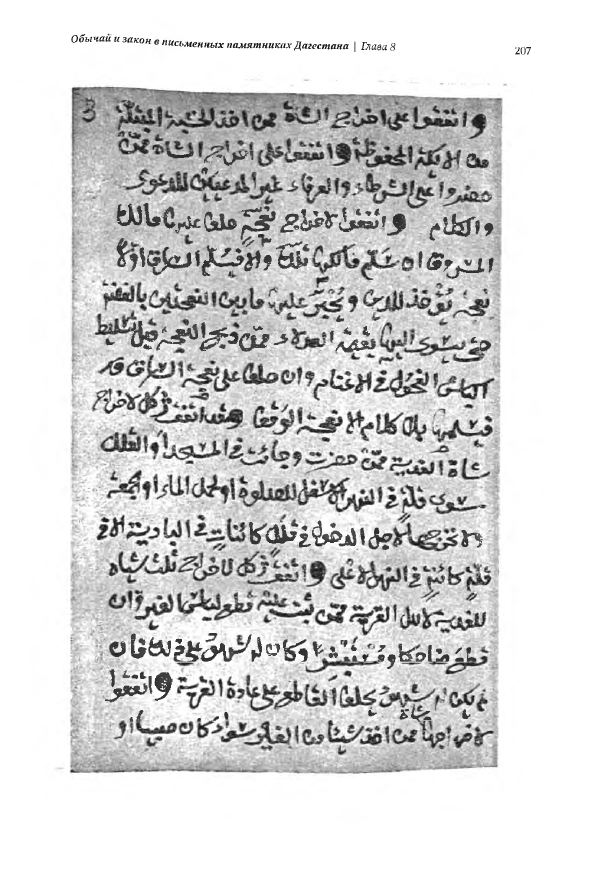 Обычай и закон в письменных памятниках Дагестана | Глава 8
207
3
واتفقوا على اخراج الشاة ممن اخذ الخشبة المبتلّة
من الاكمة المحفوظة واتفقوا على اخراج الشاة ممّن
حضروا على الشرطاء والعرفاء غير المدعيين للدعوى
والكلام واتفقوا لاخراج نعجة حلف عليها مالك
المسروق ان سلّم مالكها تلك والا فيسلّم السارق اوّلا
نعجة تؤخذ للدين ويُخيّر عليها ما بين النعجتين بالغنم
حتى يستوى اليها بقيمة العدلاء ممن ذبح النعجة قبل تسليط
الفحول في الاغنام وان حلف على نعجة السارق قد
فيسلمها بلا كلام الا نعجة الوقف وقد اتفق كل لاخراج
شاة القرية ممّن حضرت وجائت في المسجد او القلل
سوى قلة في النهر الاسفل للصلوة او لحمل الماء او الجمعة
ولا نخرجها لاجل الدخول في تلك كائنات في البادية الا في
قلة كائنة في النهر الاعلى واتفق كل لاخراج ثلث شياه
للقرية لاهل القرية ممن ثبت عليه قطع لباس الغير وان
قطع ضاحكا و وكان له شهود على ذلك فان
لم يكن له شهود يحلف القاطع على عادة القرية واتفقوا
لاخراجها شاة ممن اخذ شيئا من الغير سواء كان صبيا او